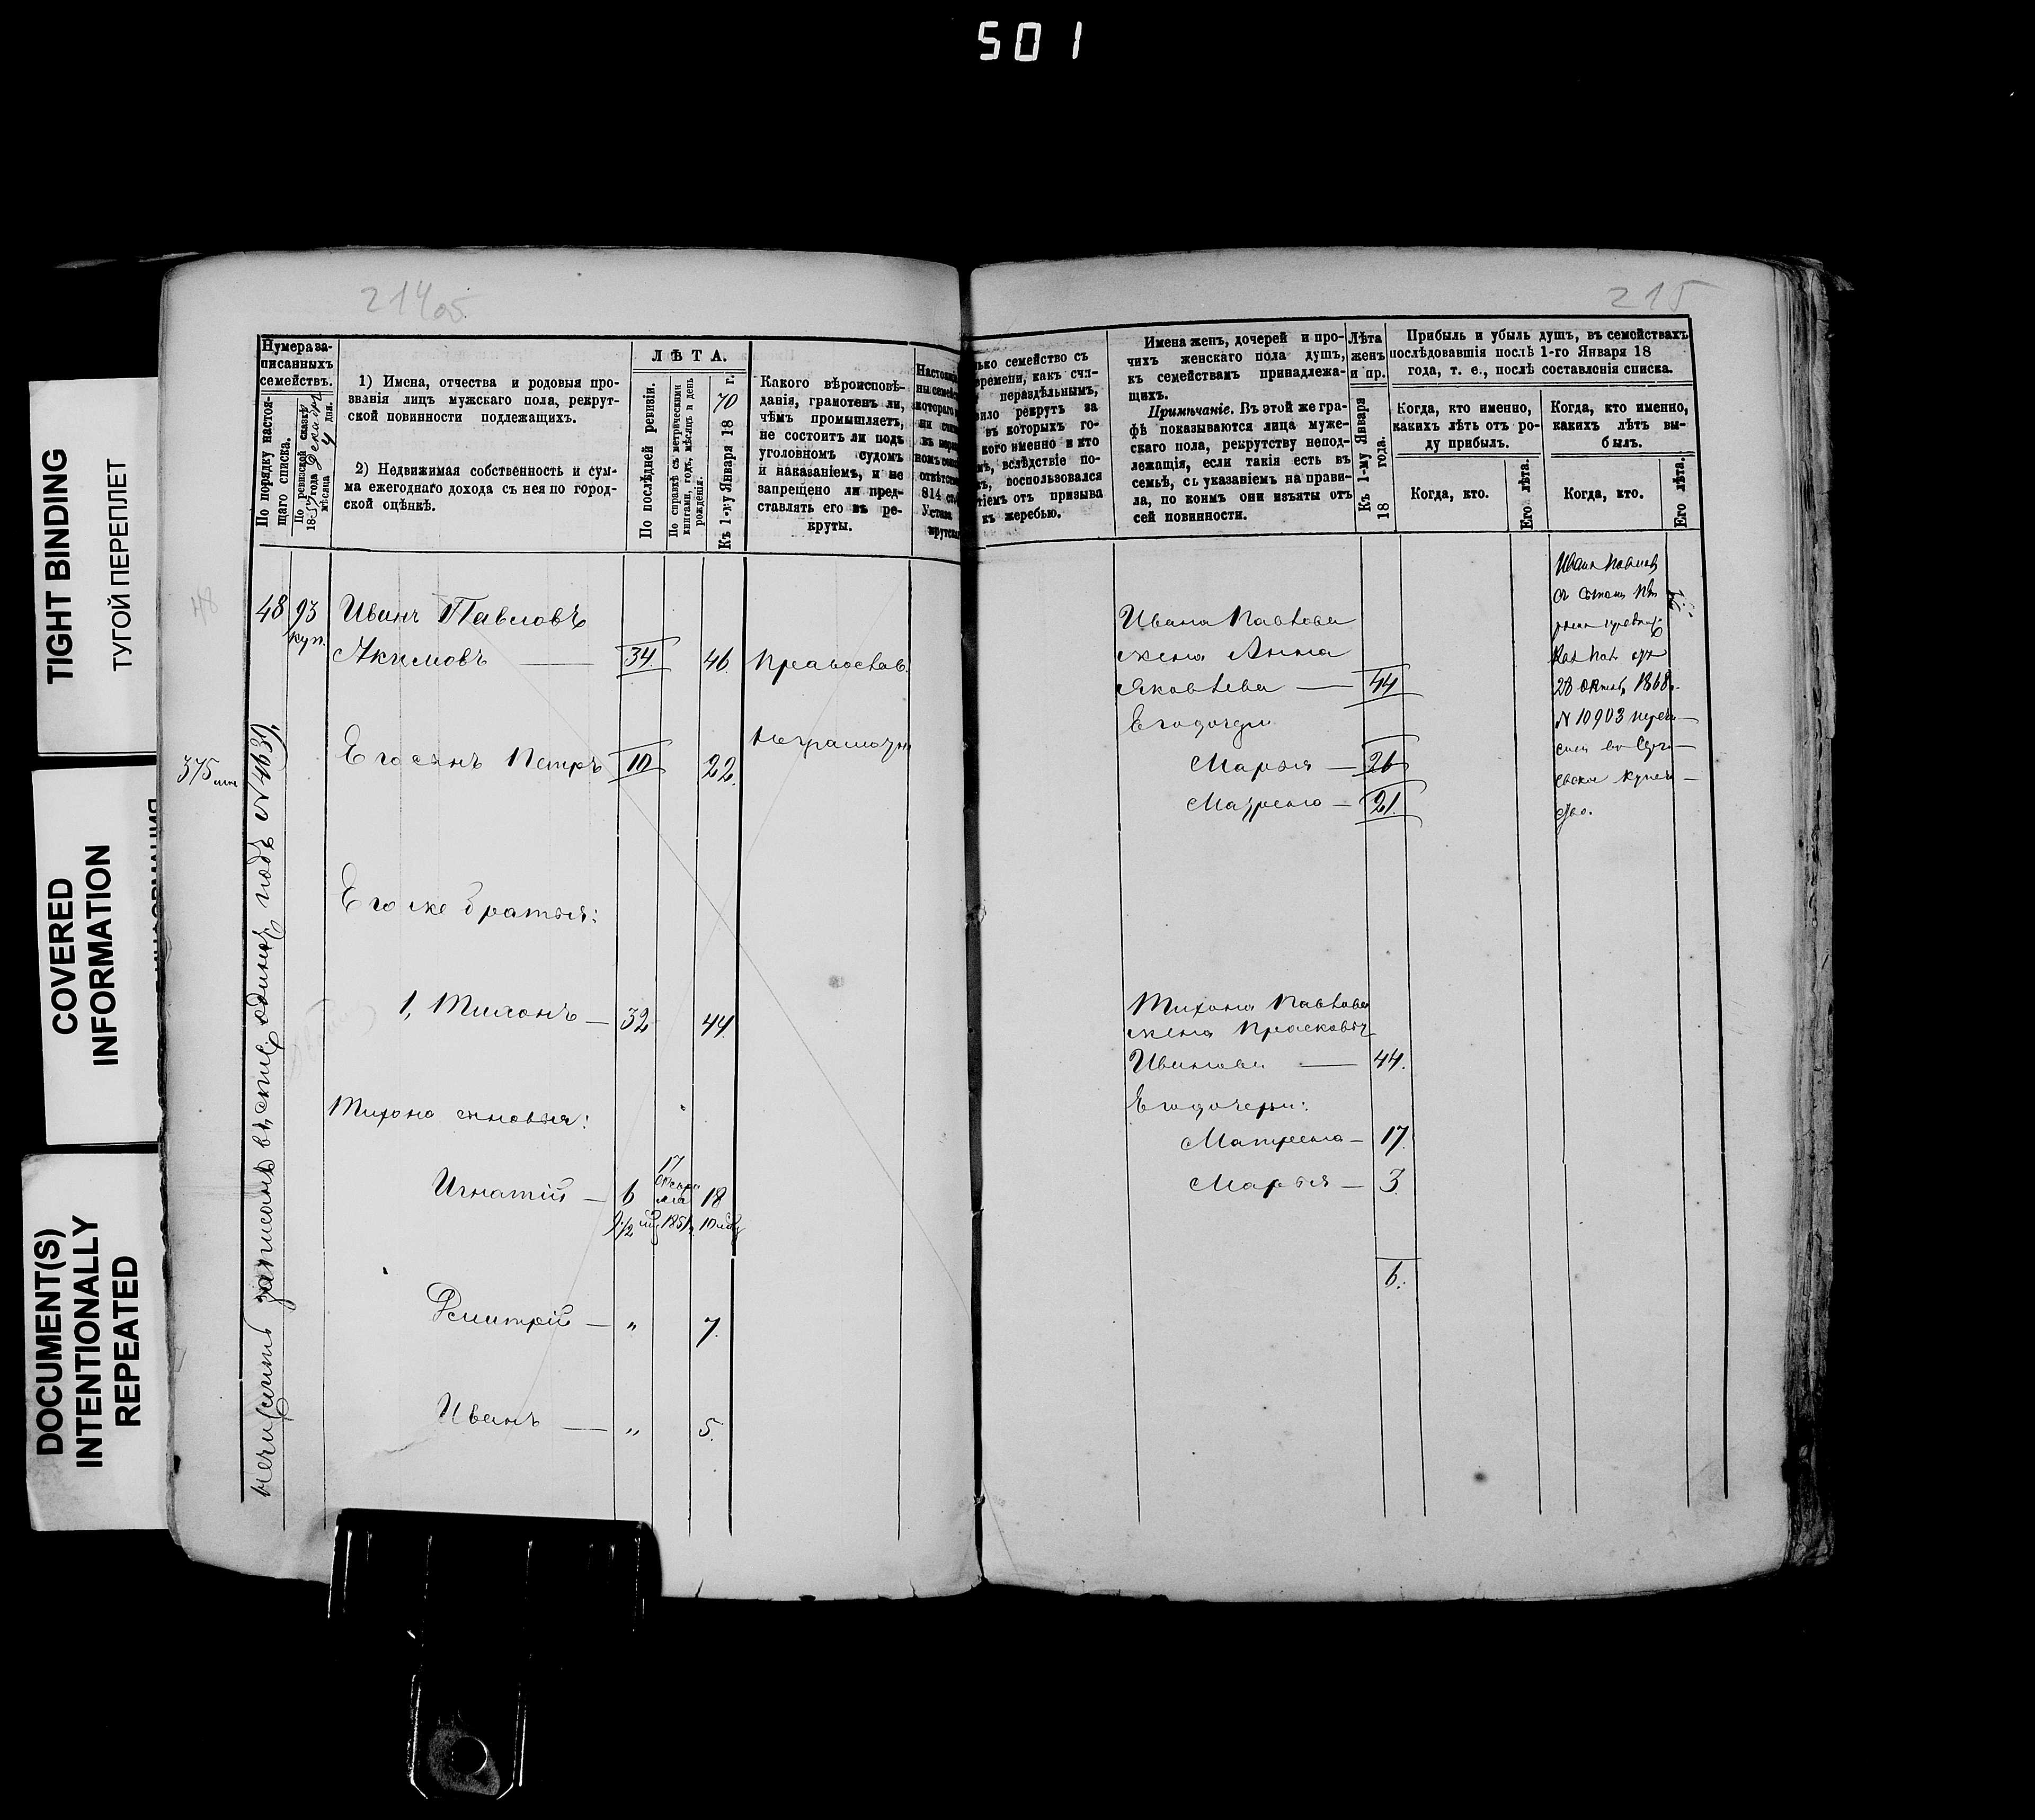 501
TIGHT BINDING
ТУГОЙ ПЕРЕПЛЕТ
COVERED
INFORMATION
DOCUMENT(S)
INTENTIONALLY
REPEATED
214 об
Нумера за-
писанныхъ
семействъ.
По порядку настоя-
щаго списка.
По ревизской сказкѣ
18 года
мѣсяца 4 дня.
1) Имена, отчества и родовыя про-
званія лицъ мужскаго пола, рекрут-
ской повинности подлежащихъ.
2) Недвижимая собственность и сум-
ма ежегоднаго дохода съ нея по город-
ской оцѣнкѣ.
ЛѢТА.
По послѣдней ревизіи.
По справкѣ съ метрическими
книгами, годъ, мѣсяцъ и день
рожденія.
Къ 1-му Января 18 70 г.
Какого вѣроисповѣ-
данія, грамотенъ ли,
чѣмъ промышляетъ,
не состоитъ ли подъ
уголовнымъ судомъ
и наказаніемъ, и не
запрещено ли пред-
ставлять его въ ре-
круты.
48
48 93 Иванъ Павловъ
куп.
Акимовъ — 34 46. Православ.
Неграмотн
375
Его сынъ Петръ 10 22.
Его же братья:
1, Тихонъ — 32 44.
Тихона сыновья:
17
Игнатій — 6 18
1851
Дмитрій — " 7.
Иванъ — " 5.
записанъ въ подъ N 4639,
215
семейство съ
времени, какъ счи-
нераздѣльнымъ,
рекрутъ за
въ которыхъ го-
кого именно и кто
вслѣдствіе по-
воспользовался
отъ призыва
къ жеребью.
Имена женъ, дочерей и про-
чихъ женскаго пола душъ,
къ семействамъ принадлежа-
щихъ.
Примѣчаніе. Въ этой же гра-
фѣ показываются лица муже-
скаго пола, рекрутству непод-
лежащія, если такія есть въ
семьѣ, съ указаніемъ на прави-
ла, по коимъ они изъяты отъ
сей повинности.
Лѣта
женъ
и пр.
Къ 1-му Января
18 года.
Прибыль и убыль душъ, въ семействахъ
послѣдовавшія послѣ 1-го Января 18
года, т. е., послѣ составленія списка.
Когда, кто именно,
какихъ лѣтъ отъ ро-
ду прибылъ.
Когда, кто именно,
какихъ лѣтъ вы-
былъ.
Когда, кто.
Его лѣта.
Когда, кто.
Его лѣта.
Ивана Павлова
жена Анна
Яковлева — 44
Его дочери
Марья — 26
Матрена — 21.
Тихона Павлова
жена Прасковья
Иванова — 44.
Его дочери:
Матрена — 17.
Марья — 3.
6.
Иванъ Павловъ
съ сыномъ
28 Октяб, 1868
N 10903